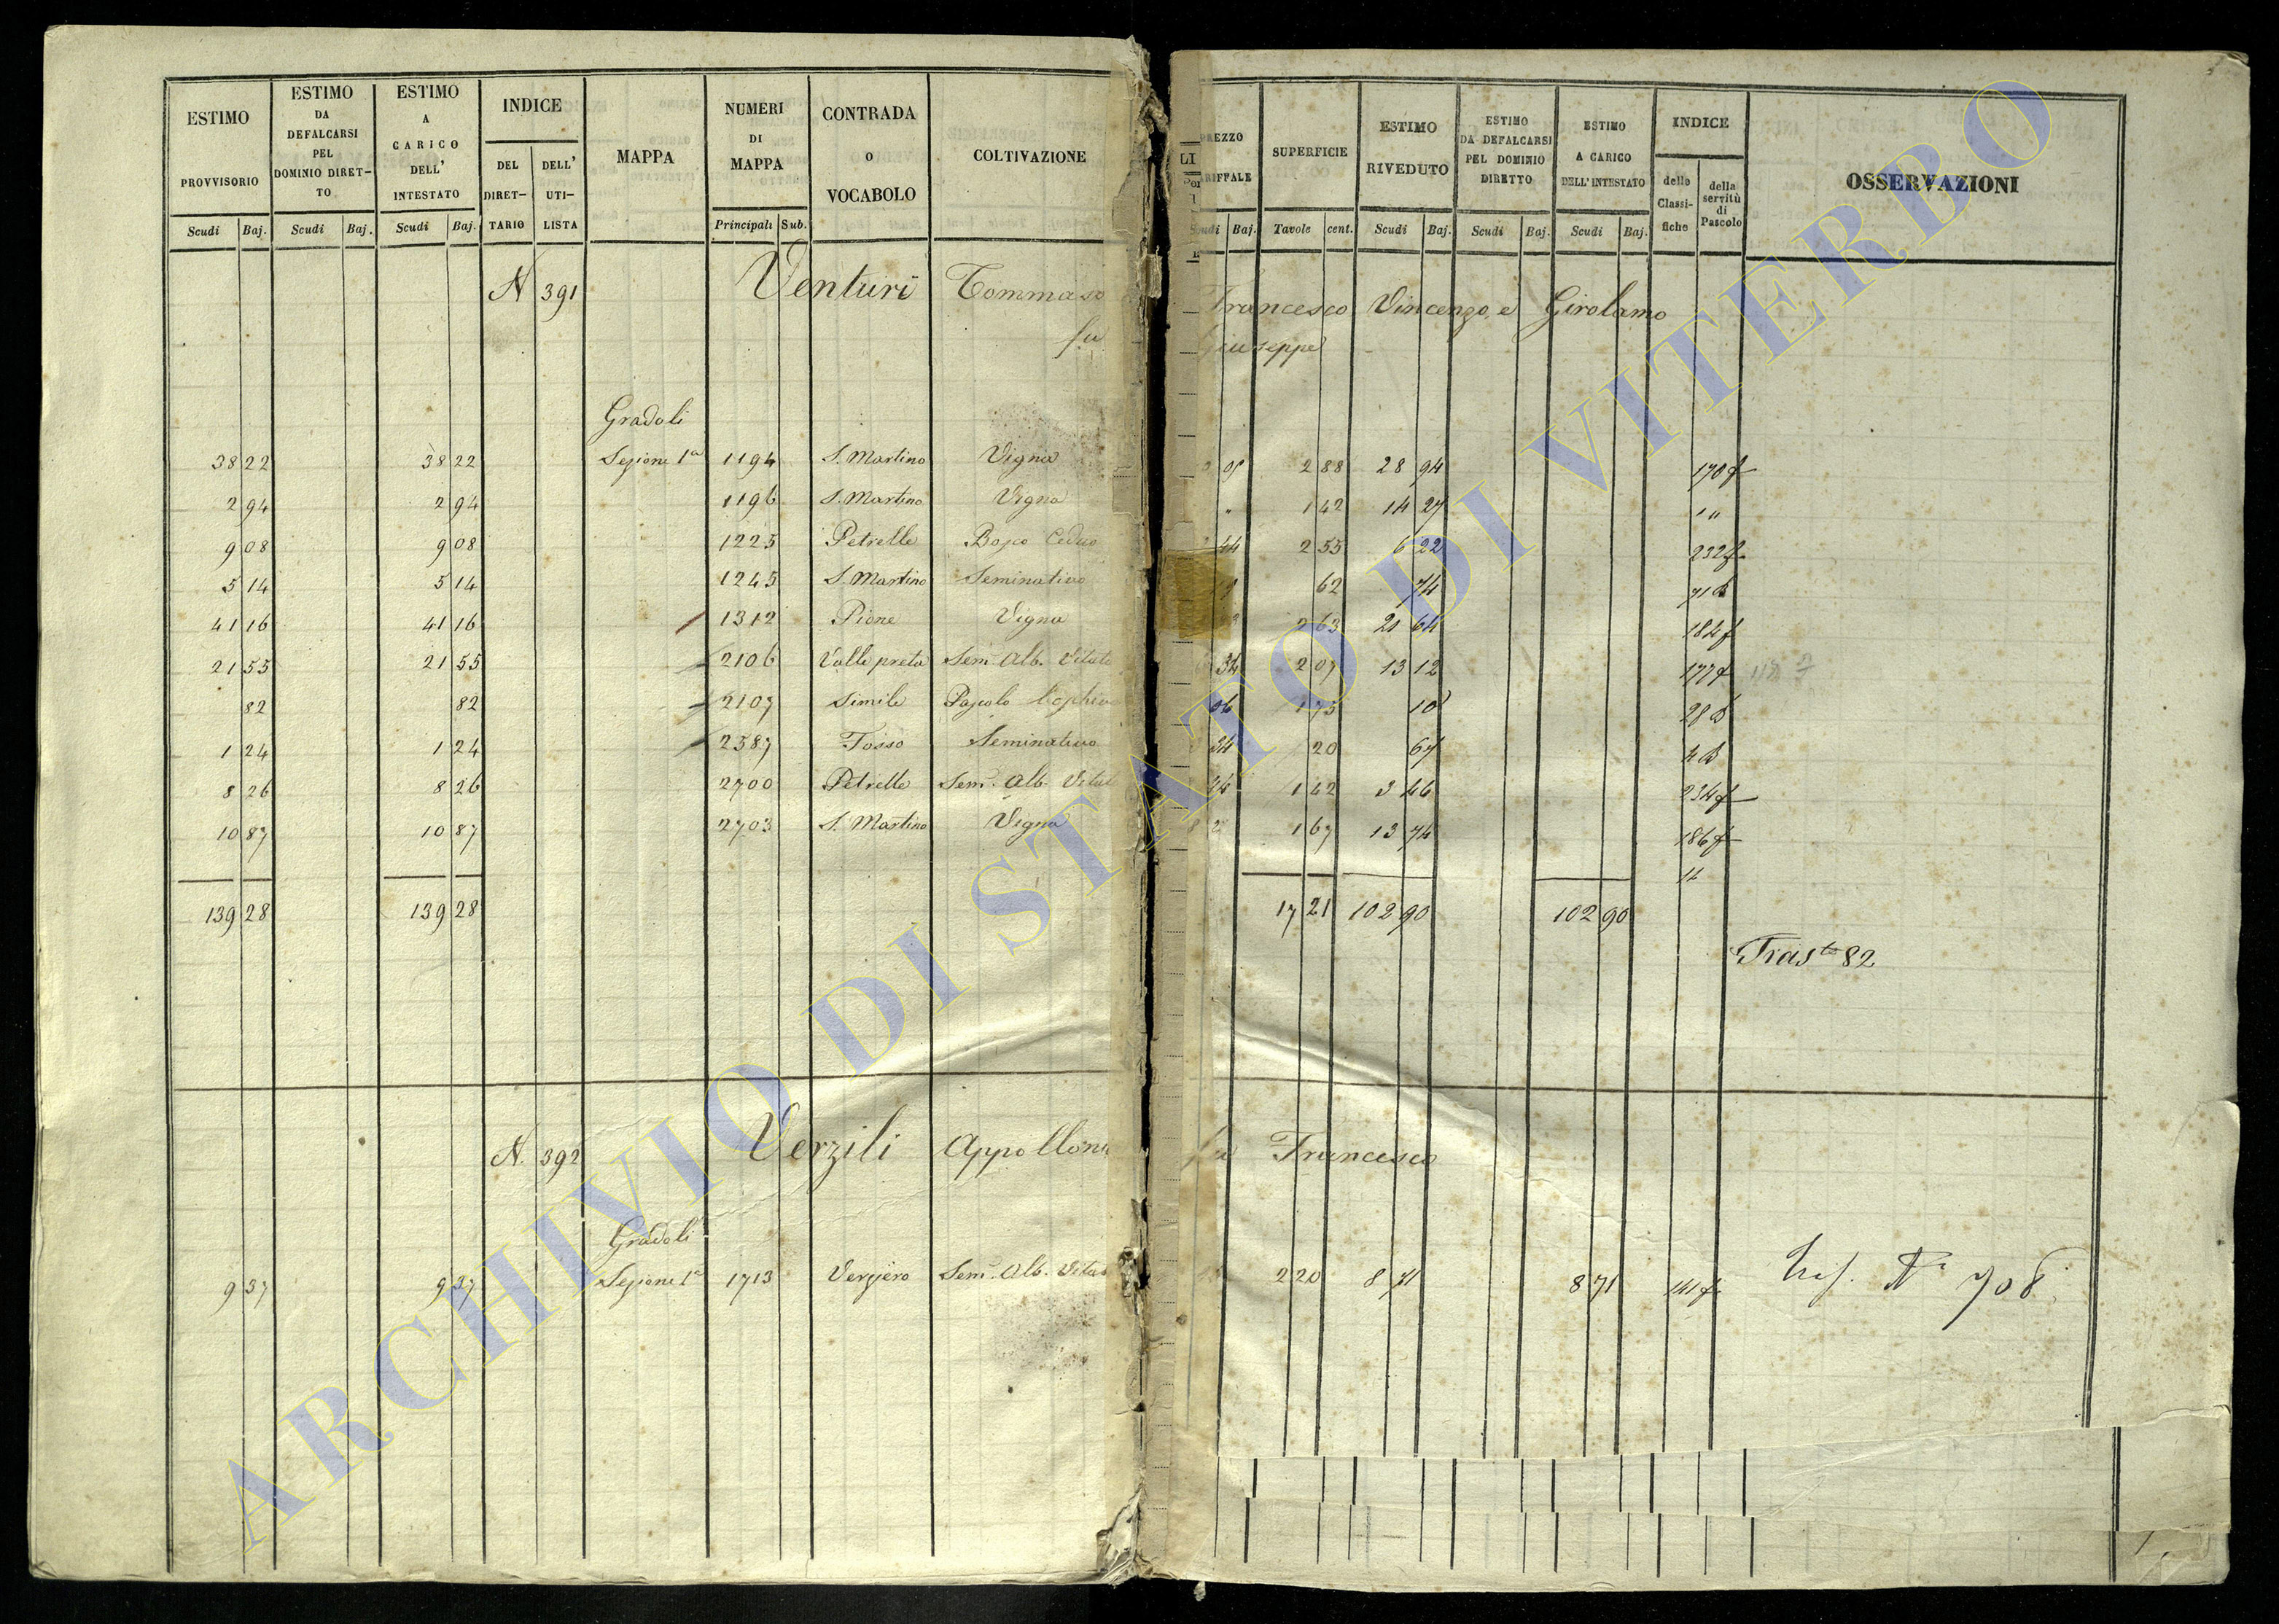 ESTIMO PROVVISORIO Scudi Baj. ESTIMO DA DEFALCARSI PEL DOMINIO DIRET-TO Scudi Baj. ESTIMO A CARICO DELL' INTESTATO Scudi Baj. INDICE DEL DIRET-TARIO DELL' UTI-LISTA MAPPA NUMERI DI MAPPA Principali Sub. CONTRADA O VOCABOLO COLTIVAZIONE
N 391 Venturi Tommaso
fu
Gradoli
38 22 38 22 Sezione 1a 1194 S. Martino Vigna
2 94 2 94 1196 S. Martino Vigna
9 08 9 08 1225 Petrelle Bosco Ceduo
5 14 5 14 1245 S. Martino Seminativo
41 16 41 16 1312 Pione Vigna
21 55 21 55 2106 Valle preta Sem. Alb. Vitato
82 82 2107 Simile Pascolo
1 24 1 24 2387 Fosso Seminativo
8 26 8 26 2700 Petrelle Sem. Alb. Vitat
10 87 10 87 2703 S. Martino Vigna
139 28 139 28
N. 392 Verzili Appollonia
Gradoli
9 37 9 37 Sezione 1a 1713 Verziero Sem. Alb. Vitat
REZZO RIFFALE Baj. SUPERFICIE Tavole cent. ESTIMO RIVEDUTO Scudi Baj. ESTIMO DA DEFALCARSI PEL DOMINIO DIRETTO Scudi Baj. ESTIMO A CARICO DELL'INTESTATO Scudi Baj. INDICE delle Classi-fiche della servitù di Pascolo OSSERVAZIONI
Francesco Vincenzo e Girolamo
Giuseppe
2 88 28 94 170 f
" 1 42 14 27 1 "
44 2 55 6 22 232 f
62 74 71
2 63 21 64 184 f
34 2 07 13 12 177 f
06 1 75 10 28
34 20 67 4
24 1 42 3 46 234 f
1 67 13 74 186 f
14
17 21 102 90 102 90
Trasto 82
fu Francesco
2 20 8 71 8 71 141 f Tras. No 708
ARCHIVIO DI STATO DI VITERBO